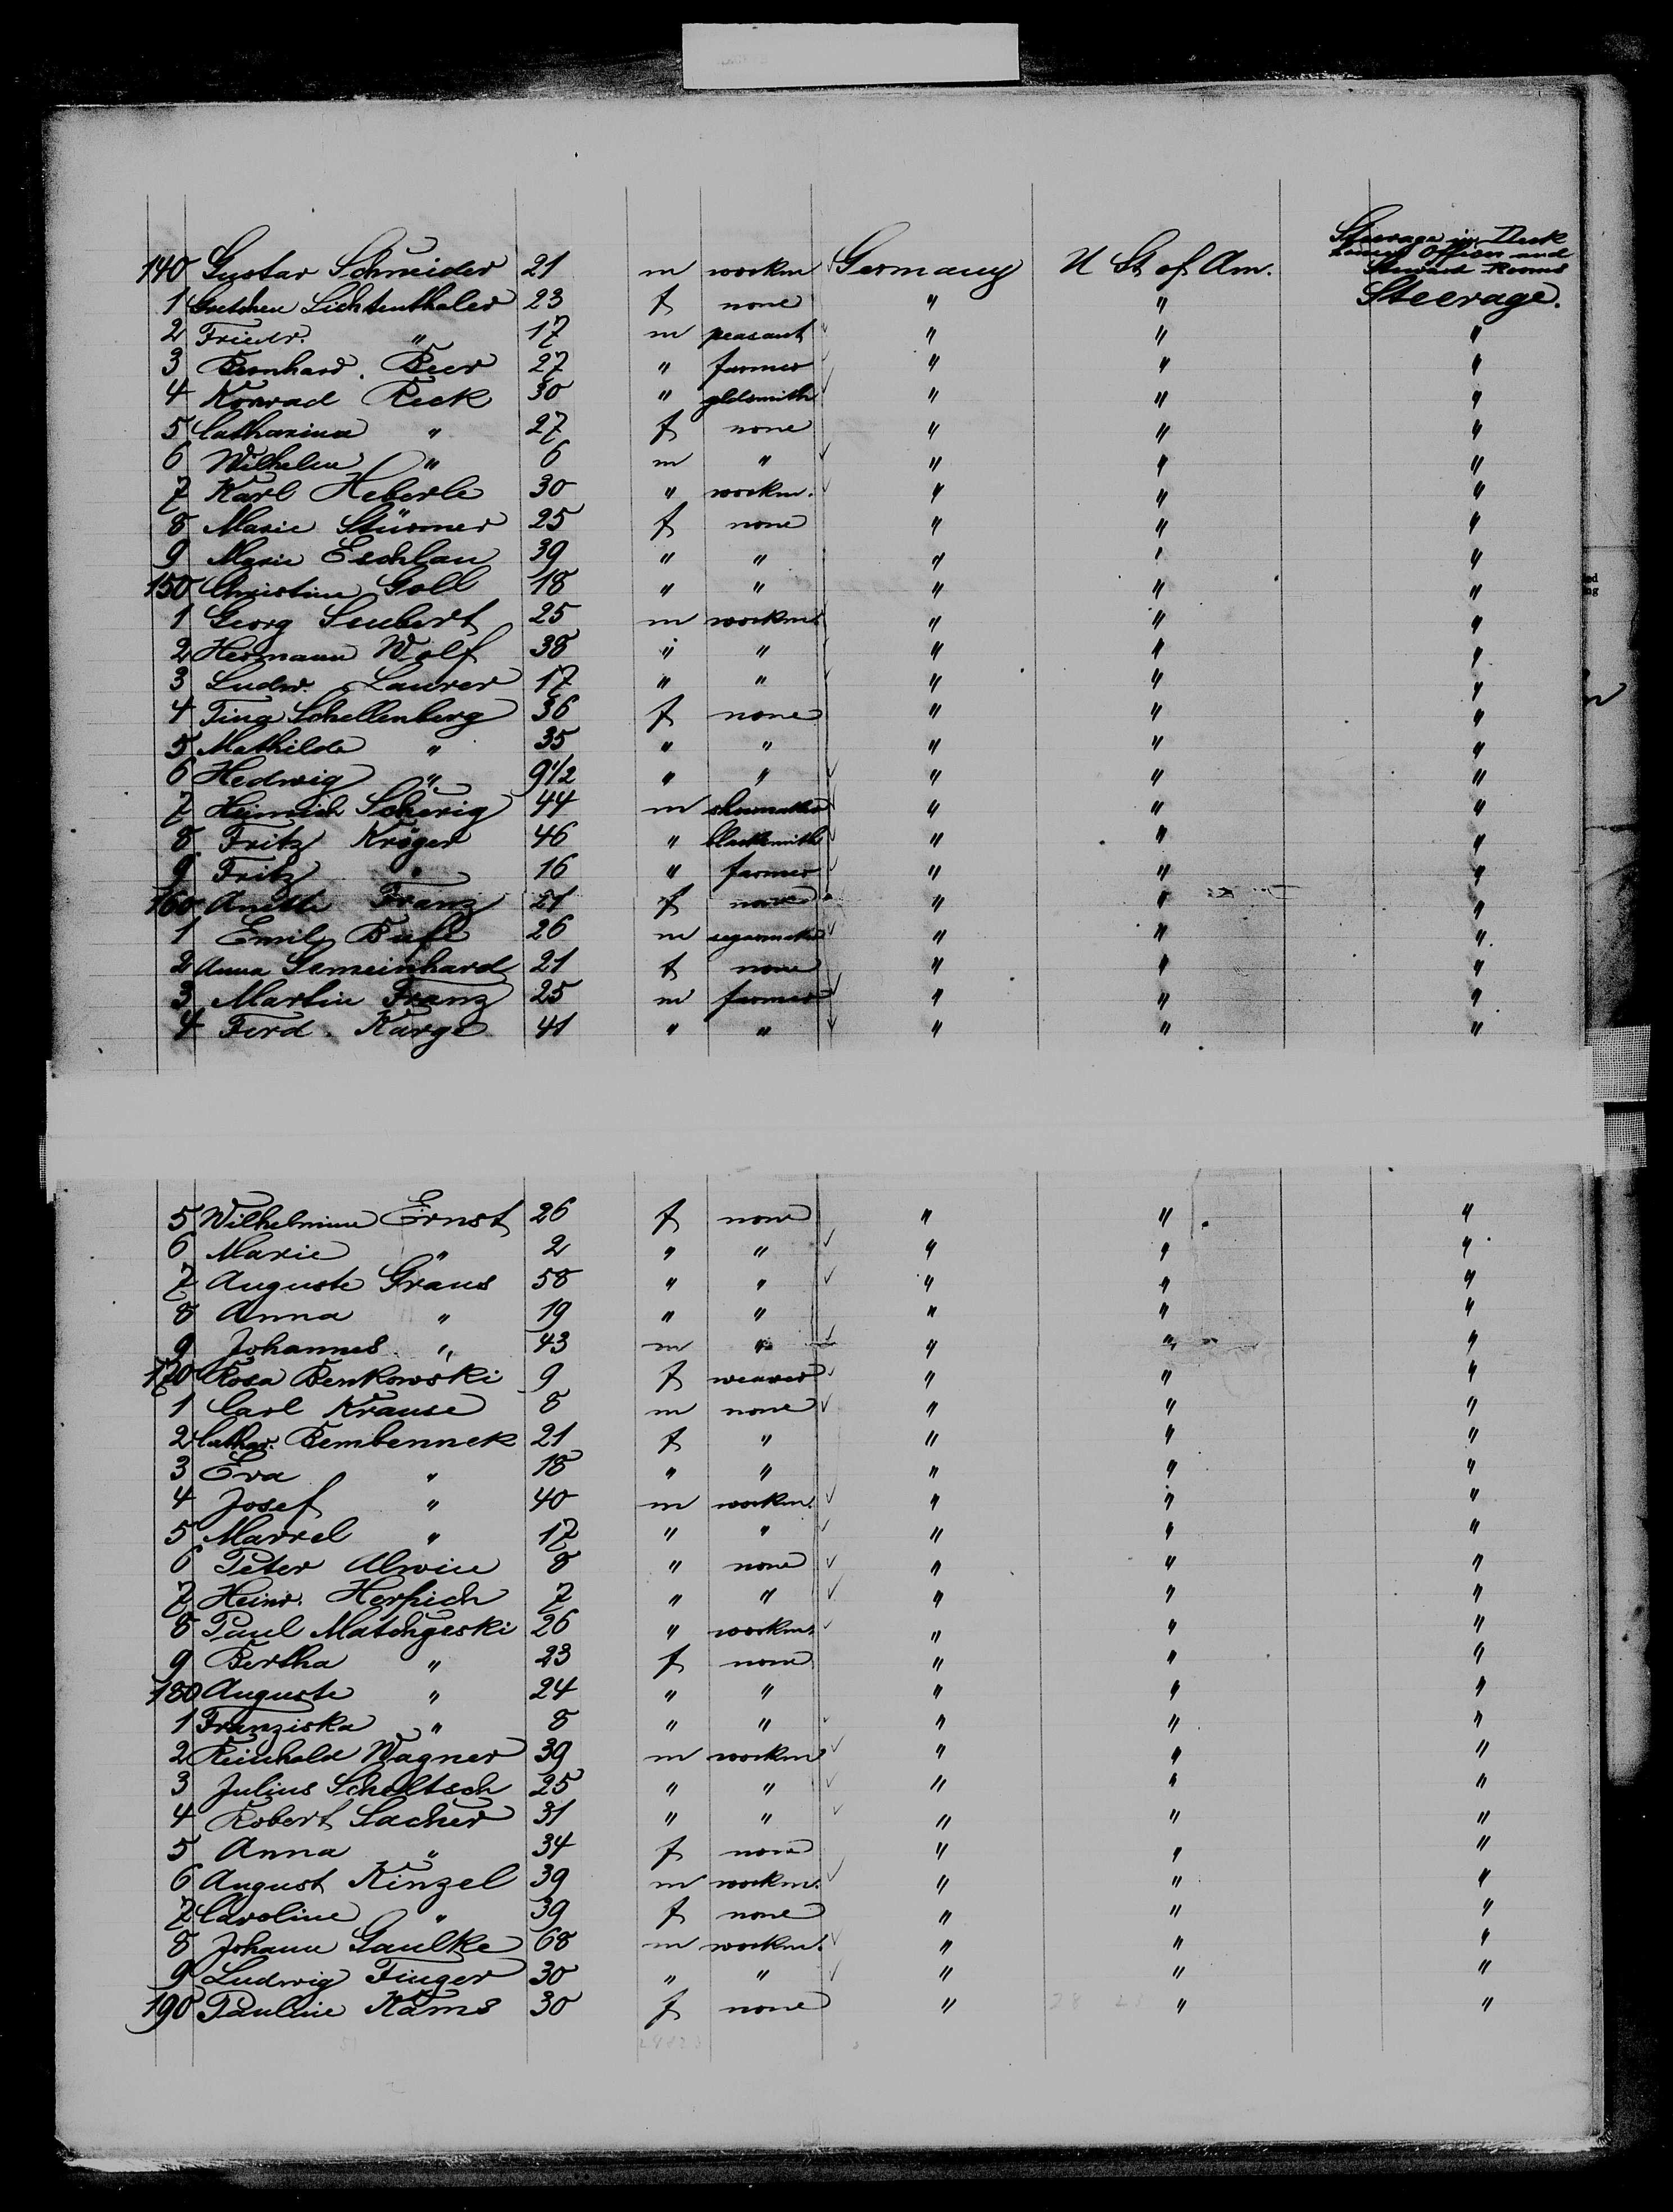 Steerage in Deck
House Officer and
Steward Rooms
140 Gustav Schneider 21 m workm Germany U St of Am.
1 Gretchen Lichtenthaler 23 f none " " Steerage.
2 Friedr. " 17 m peasant " " "
3 Bernhard Beer 27 " farmer " " "
4 Konrad Reck 30 " gldsmith " " "
5 Catharina " 27 f none " " "
6 Wilhelm " 6 m " " " "
7 Karl Heberle 30 " workm. " " "
8 Marie Stürmer 25 f none " " "
9 Marie Eschlau 39 " " " " "
150 Christine Goll 18 " " " " "
1 Georg Seubert 25 m workm. " " "
2 Hermann Wolf 38 " " " " "
3 Ludw. Laurer 17 " " " " "
4 Tina Schellenberg 36 f none " " "
5 Mathilde " 35 " " " " "
6 Hedwig " 9 1/2 " " " " "
7 Heinrich Scherig 44 m shoemaker " " "
8 Fritz Kröger 46 " blacksmith " " "
9 Fritz " 16 " farmer " " "
160 Anette Franz 21 f none " " "
1 Emil Bufe 26 m segarmaker " " "
2 Anna Gemeinhard 21 f none " " "
3 Martin Franz 25 m farmer " " "
4 Ferd. Karge 41 " " " " "
5 Wilhelmine Ernst 26 f none " " "
6 Marie " 2 " " " " "
7 Auguste Graus 58 " " " " "
8 Anna " 19 " " " " "
9 Johannes " 43 m " " " "
170 Rosa Benkowski 9 f weaver " " "
1 Carl Krause 8 m none " " "
2 Cathar. Bembennek 21 f " " " "
3 Eva " 18 " " " " "
4 Josef " 40 m workm. " " "
5 Marrel " 17 " " " " "
6 Peter Alwin 8 " none " " "
7 Heinr. Herpich 7 " " " " "
8 Paul Matchgeski 26 " workm. " " "
9 Bertha " 23 f none " " "
180 Auguste " 24 " " " " "
1 Franziska " 8 " " " " "
2 Reinhold Wagner 39 m workm " " "
3 Julius Scholtsch 25 " " " " "
4 Robert Sacher 31 " " " " "
5 Anna " 34 f none " " "
6 August Kinzel 39 m workm. " " "
7 Caroline " 39 f none " " "
8 Johann Gaulke 68 m workm. " " "
9 Ludwig Finger 30 " " " " "
190 Pauline Kams 30 f none " " "